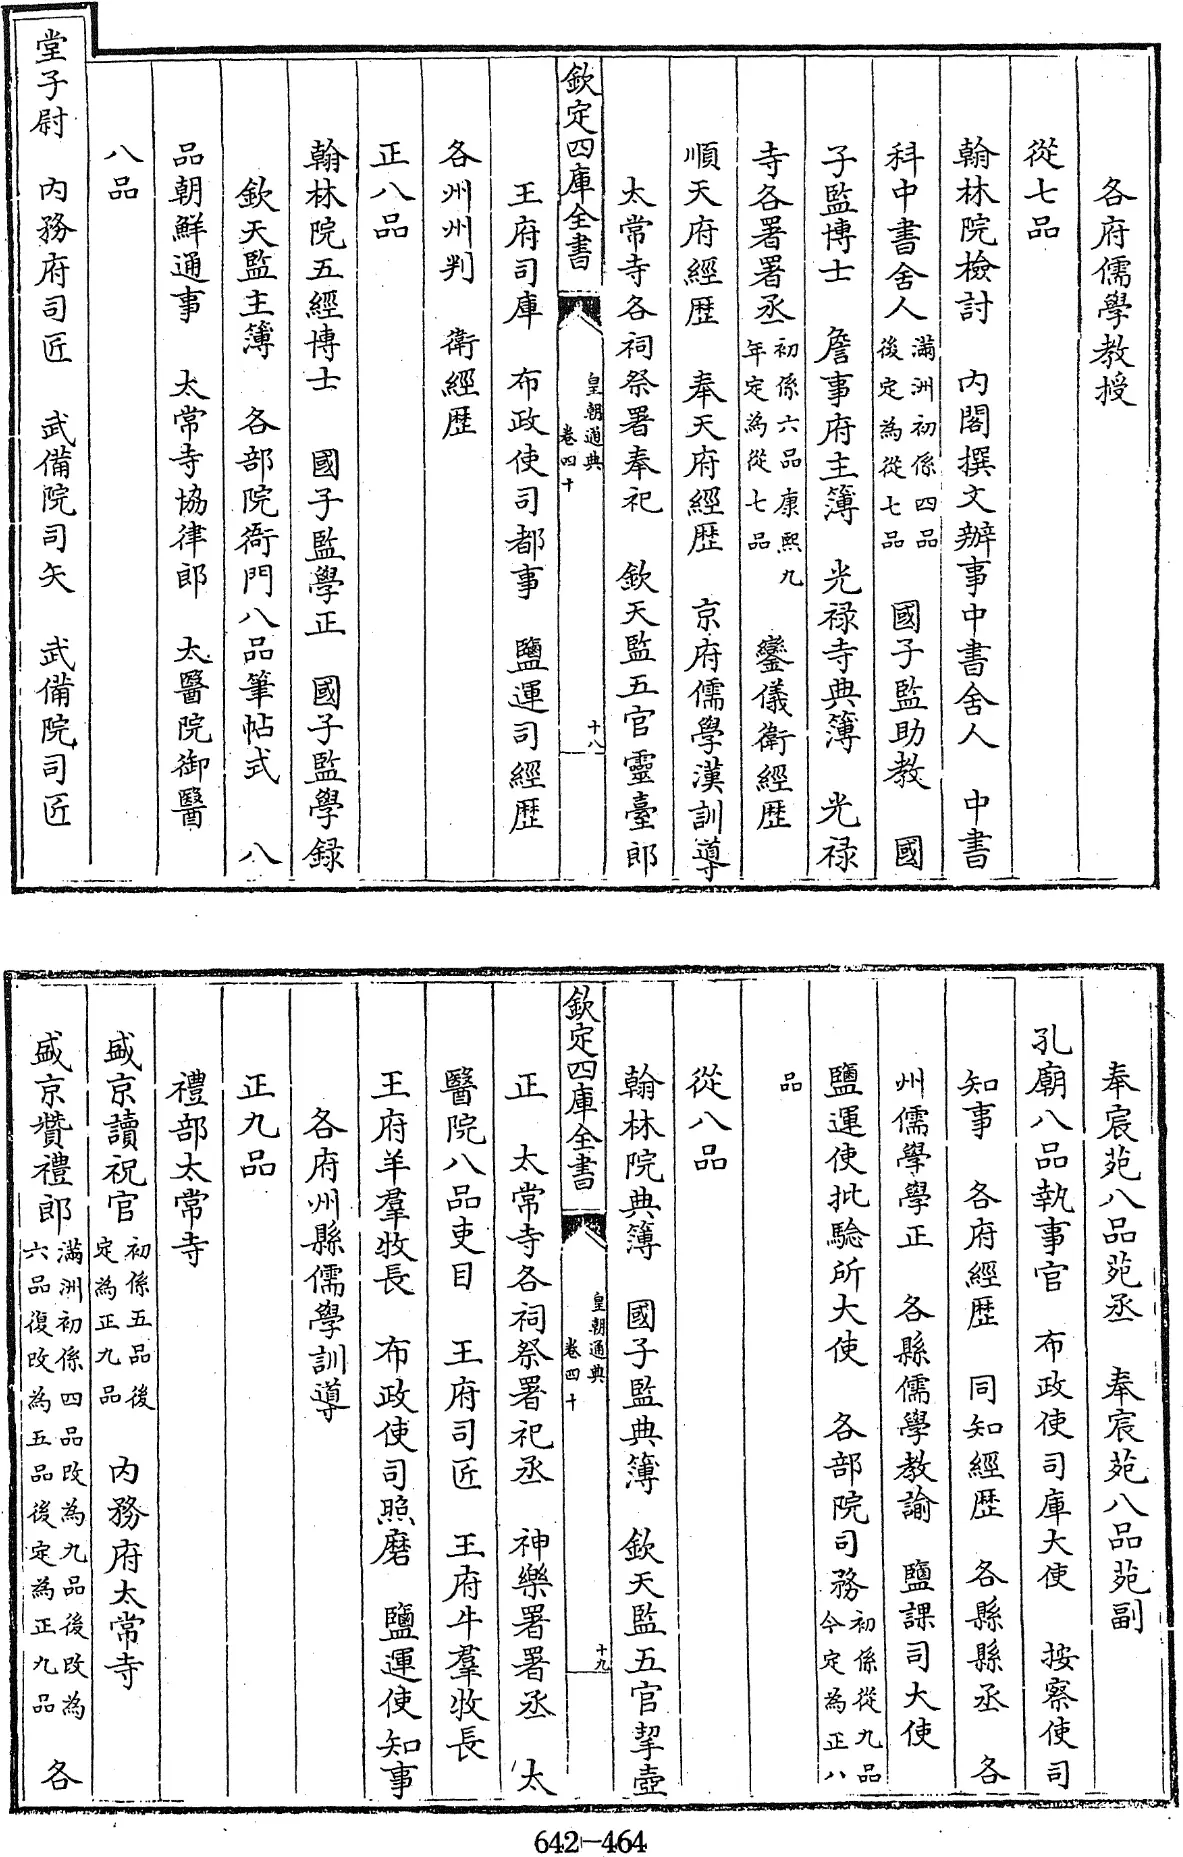 各府儒學教授
從七品
翰林院檢討　内閣撰文辦事中書舍人　中書
科中書舍人滿洲初係四品後定為從七品　國子監助教　國
子監博士　詹事府主簿　光禄寺典簿　光禄
寺各署署丞初係六品康熙九年定為從七品　鑾儀衛經歴
順天府經歴　奉天府經歴　京府儒學漢訓導
太常寺各祠祭署奉祀　欽天監五官靈臺郎
欽定四庫全書　皇朝通典卷四十　十八
王府司庫　布政使司都事　鹽運司經歴
各州州判　衛經歴
正八品
翰林院五經博士　國子監學正　國子監學録
欽天監主簿　各部院衙門八品筆帖式　八
品朝鮮通事　太常寺協律郎　太醫院御醫
八品
堂子尉　内務府司匠　武備院司矢　武備院司匠
奉宸苑八品苑丞　奉宸苑八品苑副
孔廟八品執事官　布政使司庫大使　按察使司
知事　各府經歴　同知經歴　各縣縣丞　各
州儒學學正　各縣儒學教諭　鹽課司大使
鹽運使批驗所大使　各部院司務初係從九品今定為正八
品
從八品
翰林院典簿　國子監典簿　欽天監五官挈壺
欽定四庫全書　皇朝通典卷四十　十九
正　太常寺各祠祭署祀丞　神樂署署丞　太
醫院八品吏目　王府司匠　王府牛羣牧長
王府羊羣牧長　布政使司照磨　鹽運使知事
各府州縣儒學訓導
正九品
禮部太常寺
盛京讀祝官初係五品後定為正九品　内務府太常寺
盛京贊禮郎滿洲初係四品改為九品後改為六品復改為五品後定為正九品　各
642-464